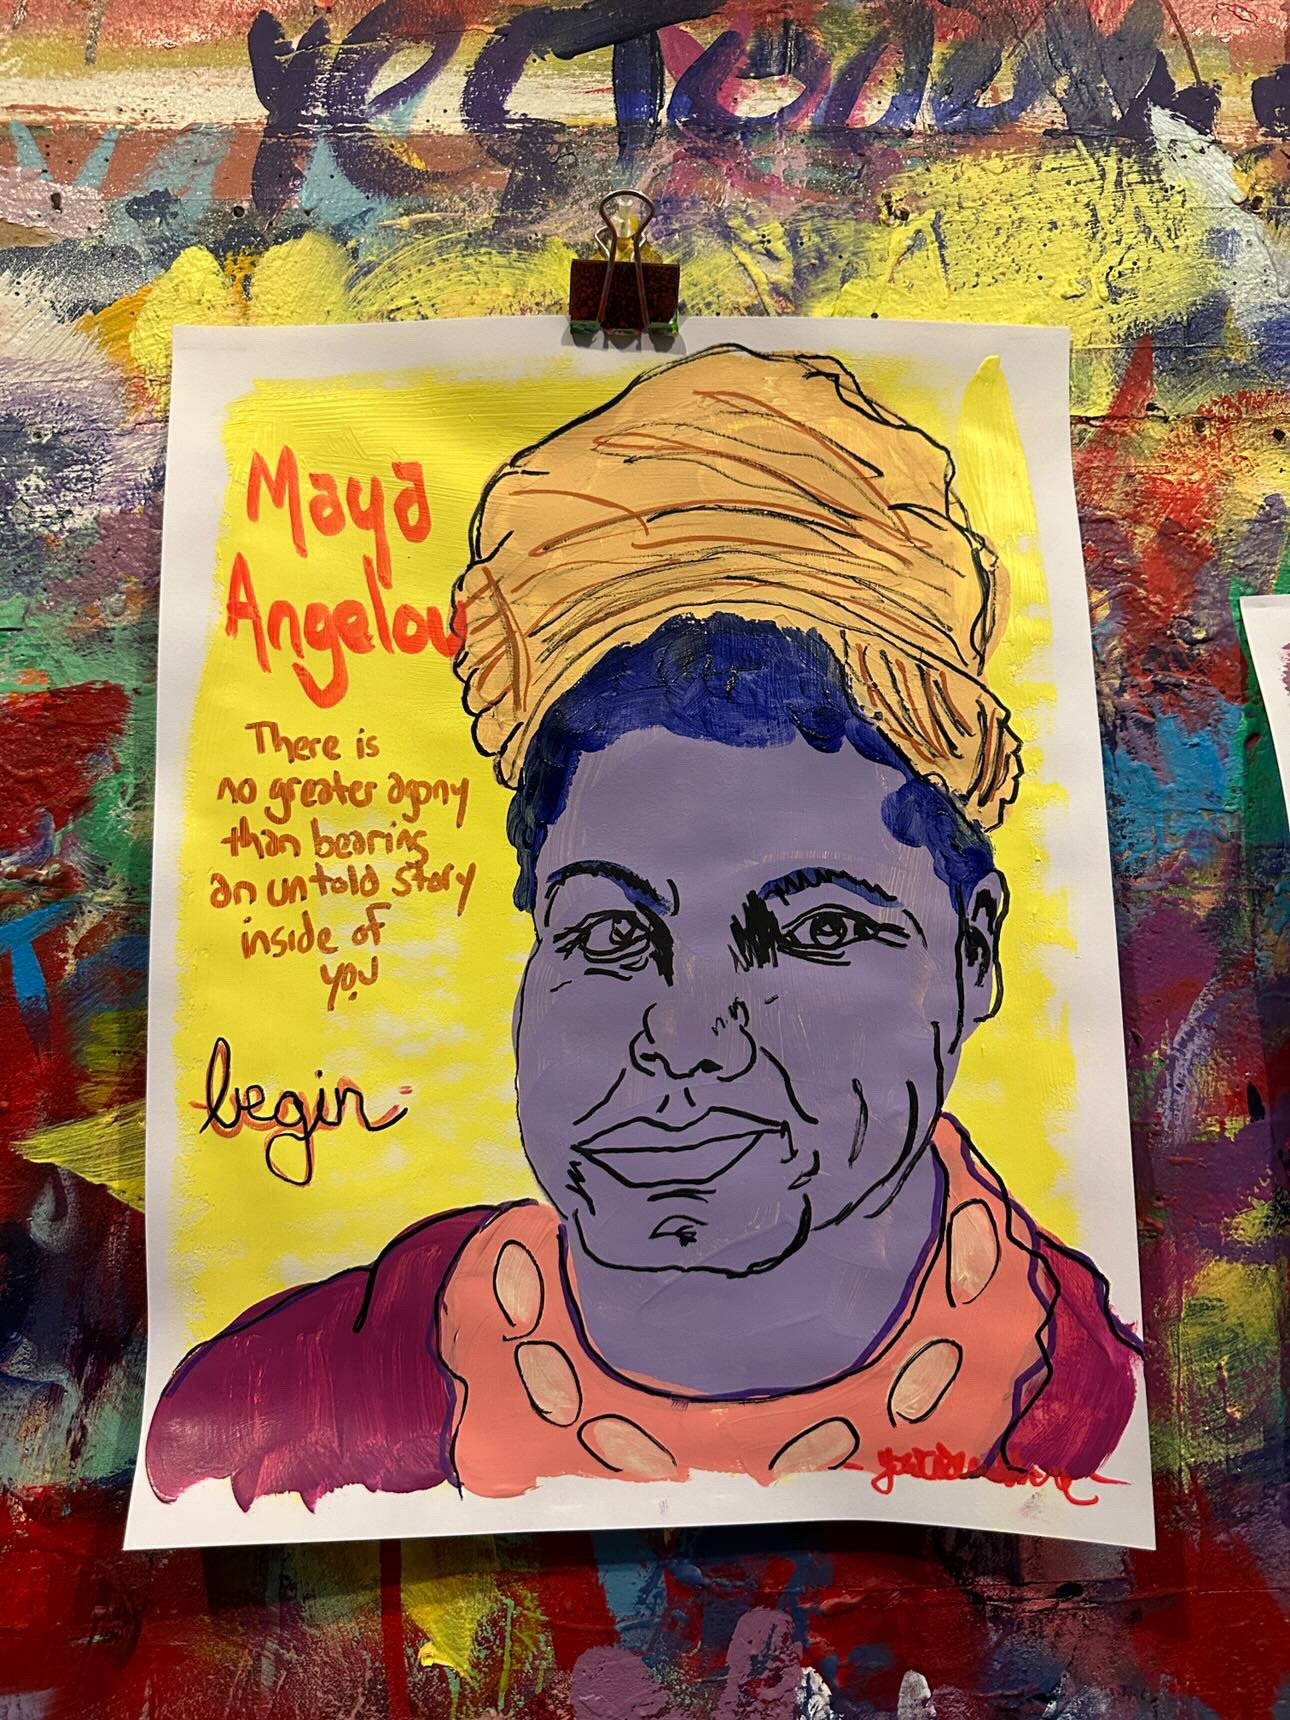 Maya
Angelou
There is
no greater agony
than bearing
an untold story
inside of
you
begin